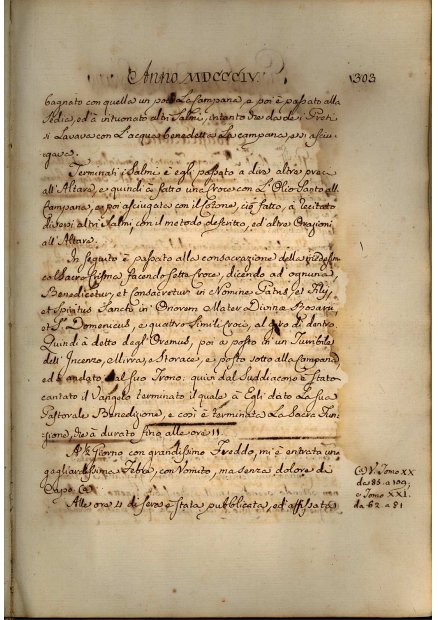 Anno MDCCCIV. 1303
bagnato con quella un poco La Campana, e poi è passato alla
Sedia, ed à intuonato altri Salmi, intanto che da dei Preti
si Lavava con L'acqua benedetta La campana, e si asciu-
gava.
Terminati i Salmi è egli passato à dire altre oraz.
all'Altare, e quindi à fatto una Croce con L'Olio Santo alla
Campana, e poi asciugata con il Cotone, ciò fatto, à recitato
diversi altri Salmi con il metodo descritto, ed altre Orazioni
all'Altare.
In seguito è passato alla consacrazione della
col Sacro Crisma facendo sette Croce, dicendo ad ognuna,
Benedicetur, et Consacretur in Nomine Patris, et Filij,
et Spiritus Sancti in Onorem Mater Divina Rosarii
et S. Domenicus, e quattro simili Croci, al giro di dentro.
Quindi à detto degl'Oremus, poi à posto in un Turibile
dell'Incenzo, Mirra, e Storace, e posto sotto alla campana
ed è andato al suo Trono: quin dal Suddiacono è stato
cantato il Vangelo terminato il quale à Egli dato La sua
Pastorale Benedizione, e così è terminata La Sacra Fun-
zione, che à durato fino alle ore 11.
A ½ giorno con grandissimo Freddo, mi è entrata una
gagliardissima Febra, con Vomito, ma senza dolore di
Capo. (a)
Alle ore 4 di sera è stata pubblicata, ed affissata
(a) V. Tomo XX
da 85. a 109;
e Tomo XXI.
da 62. a 81